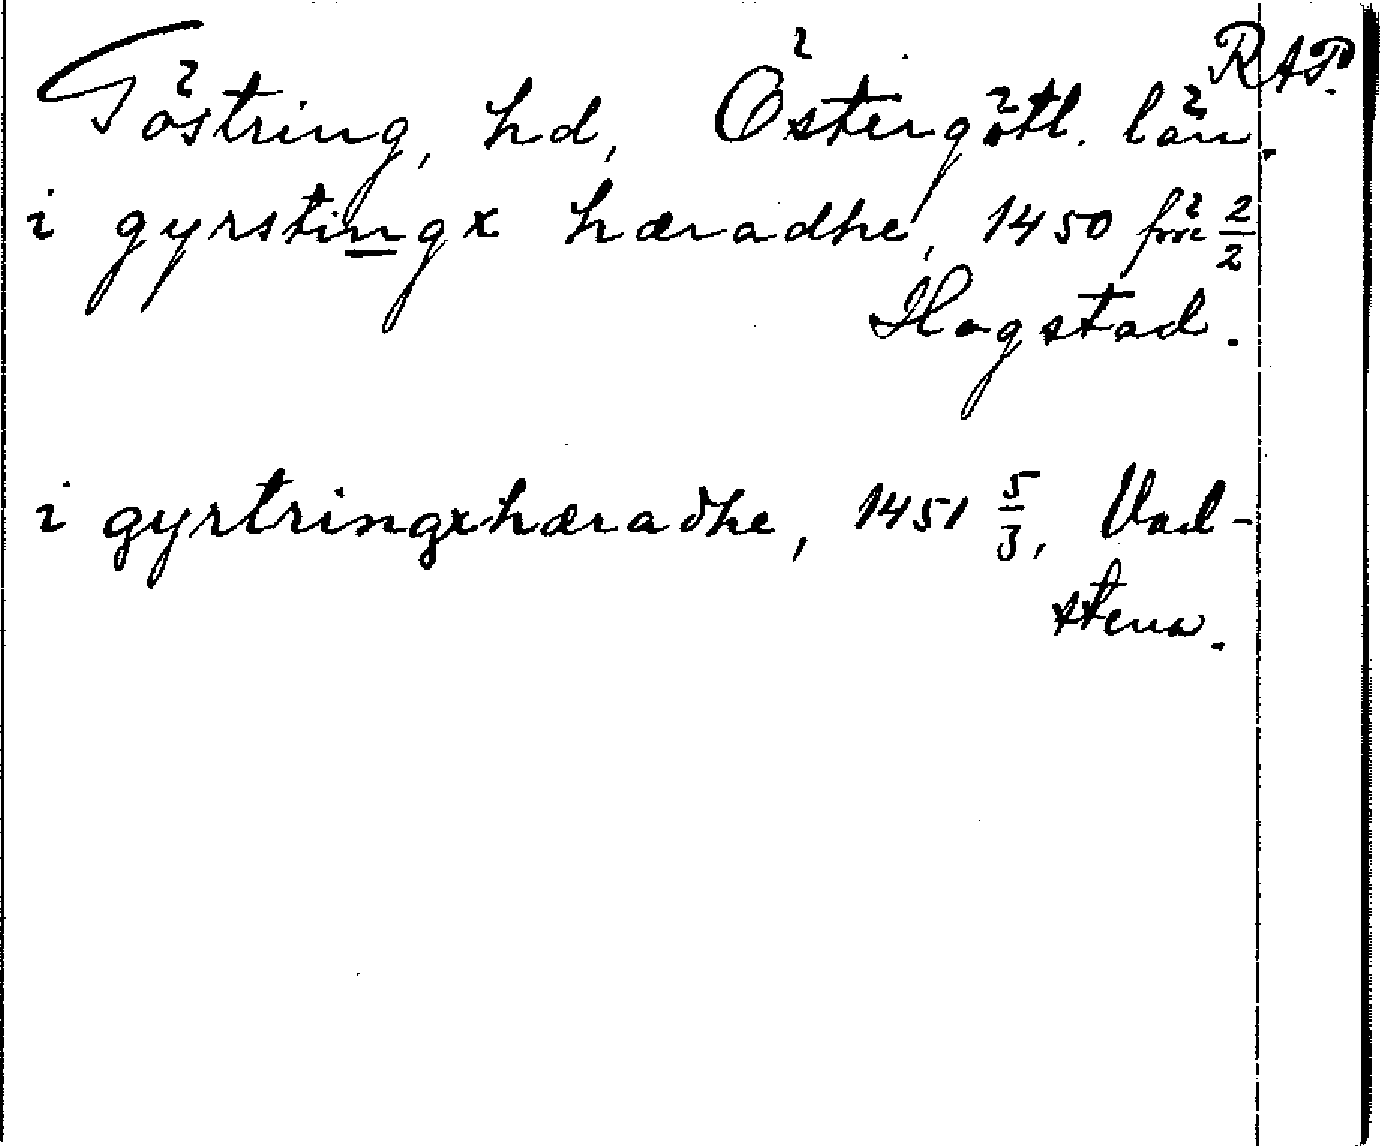 RAP.
Göstring, hd, Östergötl. län.
i gyrstingx hæradhe, 1450 före 2/2
Hogstad.
i gyrtringxhæradhe, 1451 5/3, Vad-
stena.